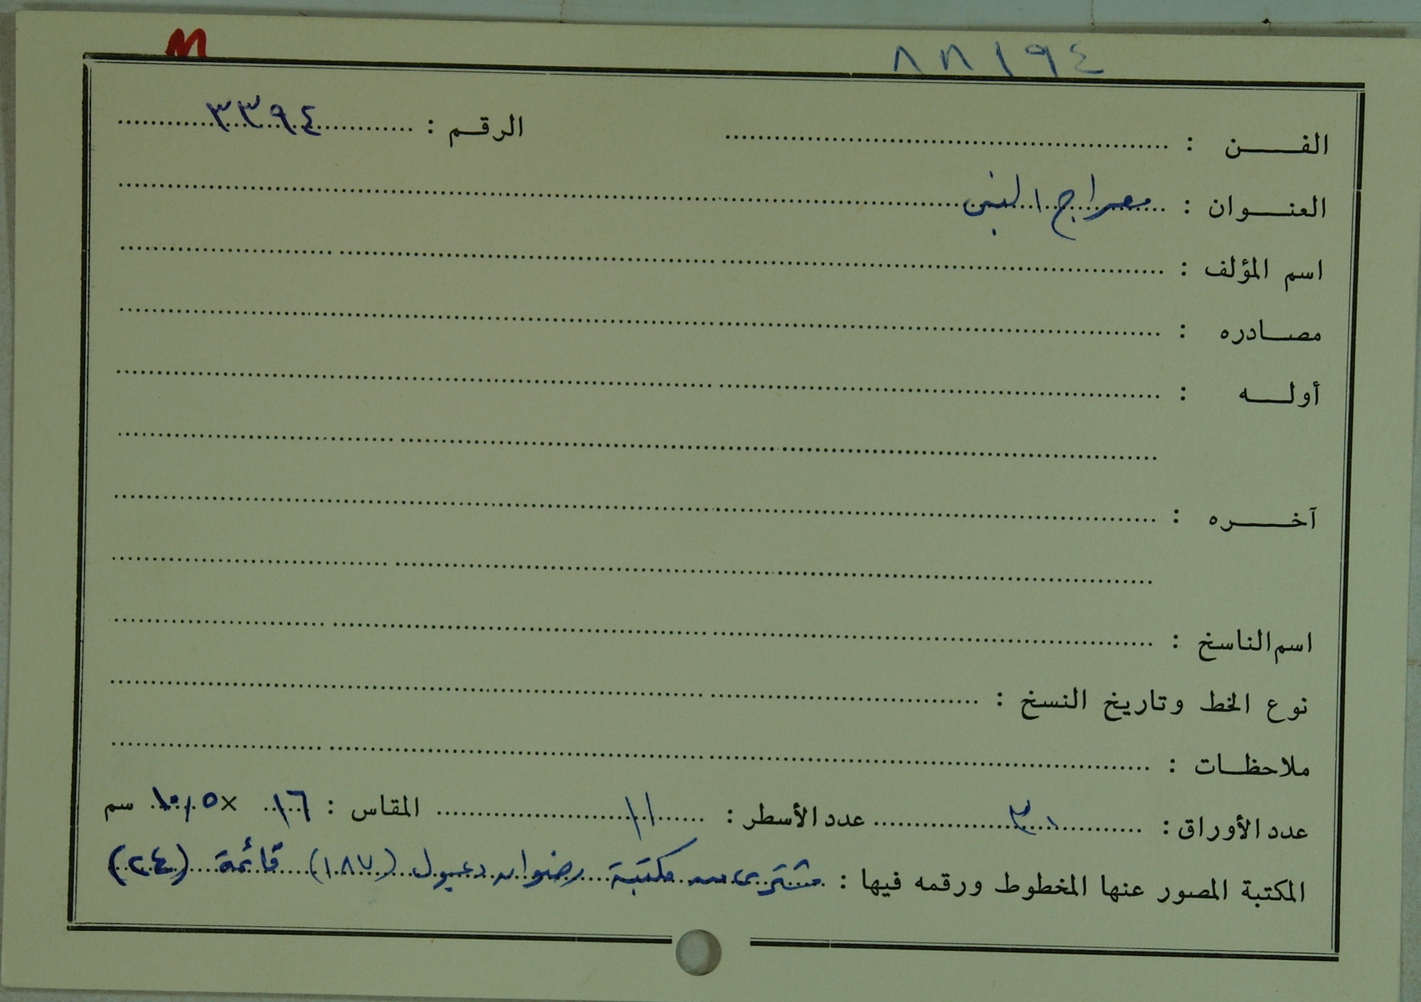 ٨٨١٩٤
الفن : الرقم : ٣٣٩٤
العنوان : معراج النبى
اسم المؤلف :
مصادره :
أوله :
آخره :
اسم الناسخ :
نوع الخط وتاريخ النسخ :
ملاحظات :
عدد الأوراق : ٣٠ عدد الأسطر : ١١ المقاس : ١٦ × ١٠,٥ سم
المكتبة المصور عنها المخطوط ورقمه فيها : مشترى من مكتبة رضوان دعبول (١٨٧) قائمة (٢٤)